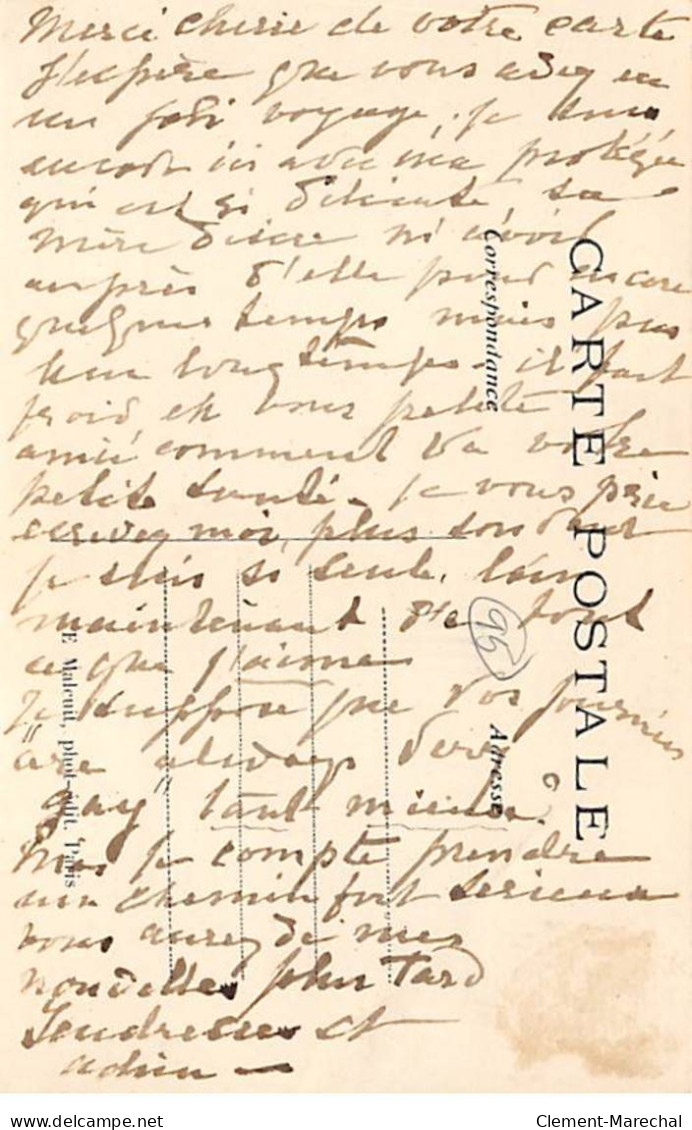 Merci cherie de votre carte
J'espère que vous avez eu
un joli voyage, je suis
encore ici avec ma protégée
qui est si délicate, sa
mère désire m'avoir
auprès d'elle pour encore
quelque temps mais pas
bien longtemps. il fait
froid, et vous petite
amie comment va votre
petite santé. je vous prie
ecrivez moi, plus souvent
je suis si seule, loin
maintenant de tout
ce que j'aime
Je suppose que vos journées
"are always very
gay" tant mieux.
Moi je compte prendre
un chemin fort serieux
vous aurez de mes
nouvelles plus tard
Tendresses et
adieu —
CARTE POSTALE
Correspondance
Adresse
95
E Malcuit, phot-édit. Paris
Clement-Marechal